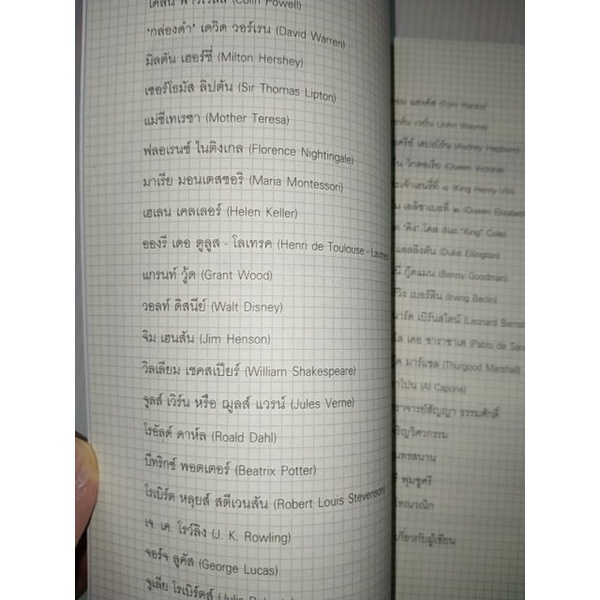 (Colin Powell)
'กล่องดำ' เดวิด วอร์เรน (David Warren)
มิลตัน เฮอร์ชี่ (Milton Hershey)
เซอร์โธมัส ลิปตัน (Sir Thomas Lipton)
แม่ชีเทเรซา (Mother Teresa)
ฟลอเรนซ์ ไนติงเกล (Florence Nightingale)
มาเรีย มอนเตสซอริ (Maria Montesson)
เฮเลน เคลเลอร์ (Helen Keller)
อองรี เดอ ตูลูส - โลเทรค (Henri de Toulouse -
แกรนท์ วู้ด (Grant Wood)
วอลท์ ดิสนีย์ (Walt Disney)
จิม เฮนสัน (Jim Henson)
วิลเลียม เชคสเปียร์ (William Shakespeare)
จูลส์ เวิร์น หรือ ฌูลส์ แวรน์ (Jules Verne)
โรอัลด์ ดาห์ล (Roald Dahl)
บีทริกซ์ พอตเตอร์ (Beatrix Potter)
โรเบิร์ต หลุยส์ สตีเวนสัน (Robert Louis Stevenson)
เจ. เค. โรว์ลิง (J. K. Rowling)
จอร์จ ลูคัส (George Lucas)
จูเลีย โรเบิร์ตส์
แฮงค์ส (Tom Hanks)
เวย์น (John Wayne)
เฮปเบิร์น (Audrey Hepburn)
วิกตอเรีย (Queen Victoria)
(King Henry VIII)
เอลิซาเบธที่ ๒ (Queen Elizabeth
"คิง" โคล (Nat "King" Cole)
แอลลิงตัน (Duke Ellington)
กู๊ดแมน (Benny Goodman)
เบอร์ลิน (Irving Berlin)
เบิร์นสไตน์ (Leonard
เดอ ซาราซาเต (Pablo de
มาร์แชล (Thurgood Marshall)
(Al Capone)
สัญญา ธรรมศักดิ์
พุ่มชูศรี
เกี่ยวกับผู้เขียน